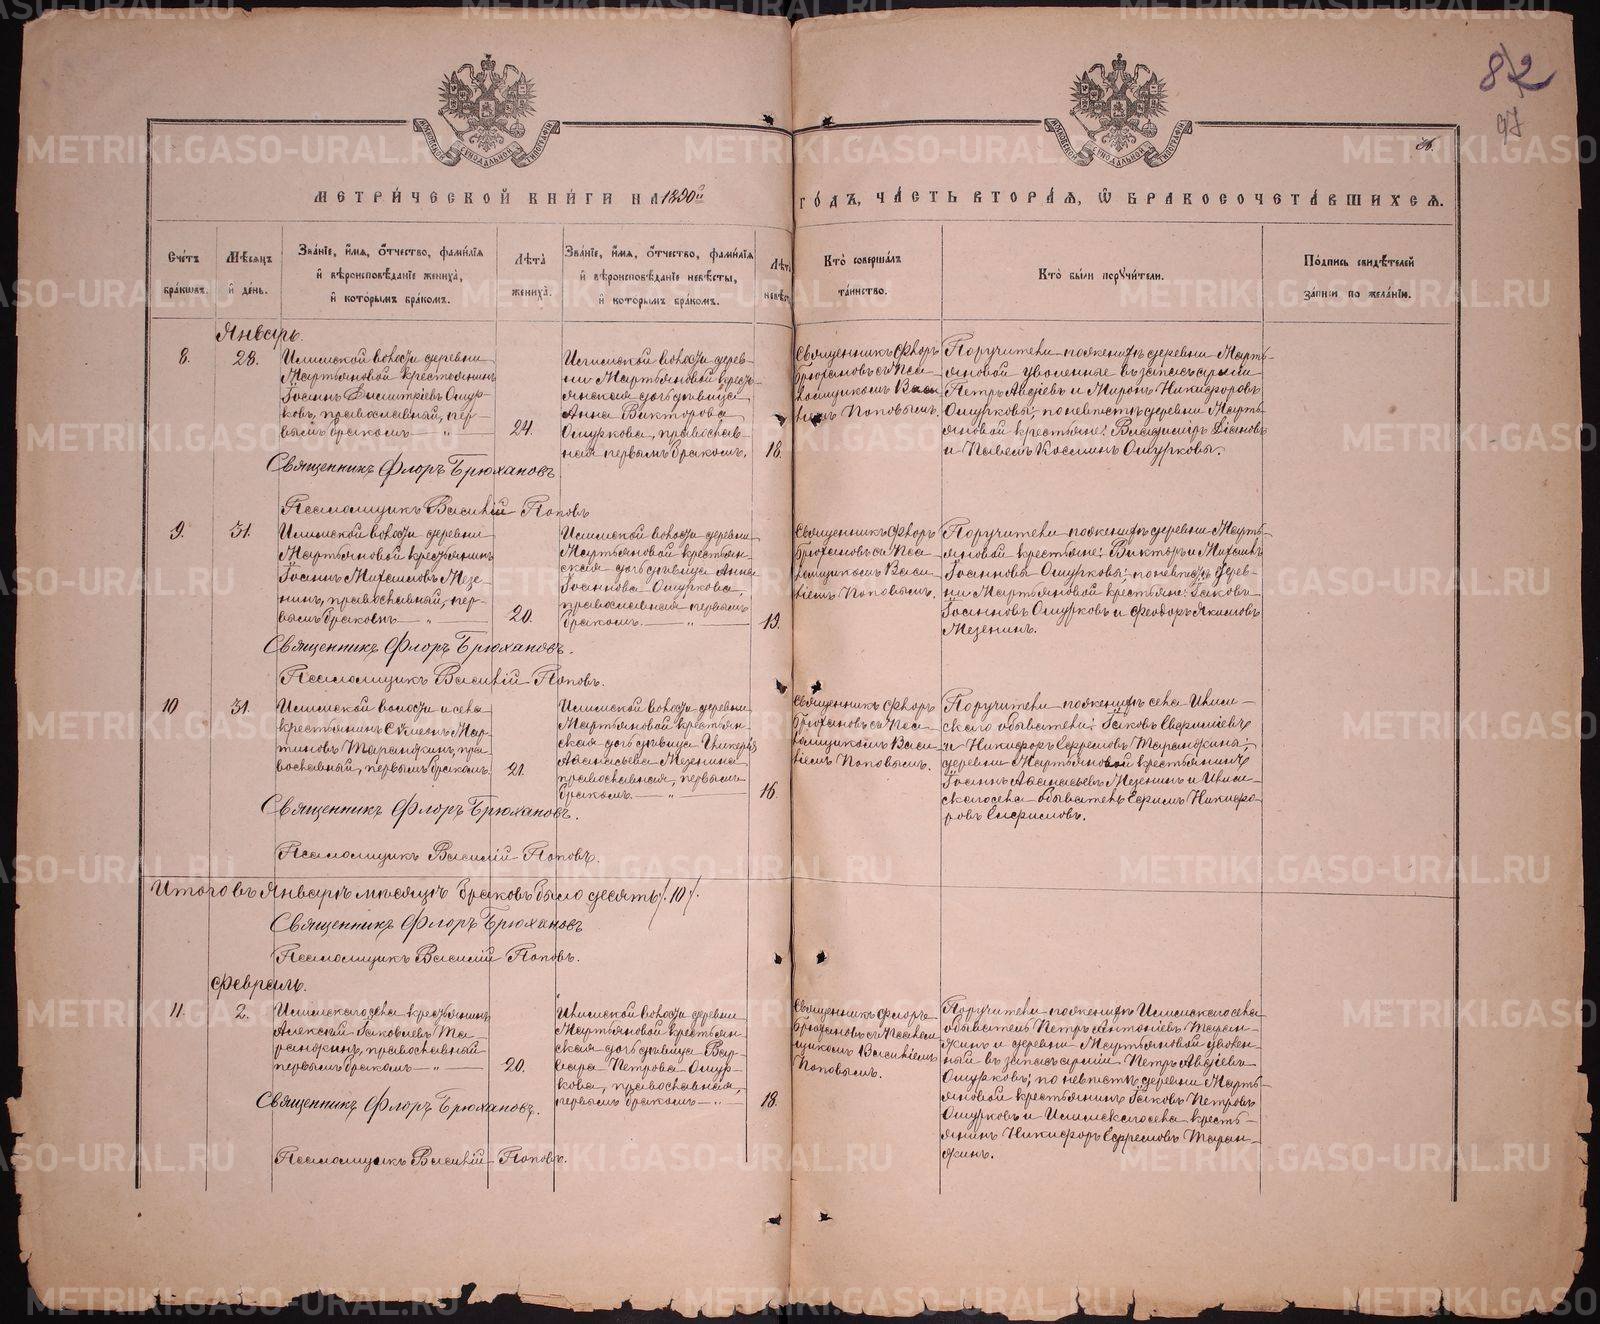 82
97
МЕТРИ́ЧЕСКОЙ КНИ́ГИ НА 1890й ГО́ДЪ, ЧА́СТЬ ВТОРА́Я, Ѽ БРАКОСОЧЕТА́ВШИХСЯ.
Сче́тъ бра́кѡвъ.
Мѣ́сяцъ и҆ де́нь.
Зва́нїе, и҆́мя, о҆́тчество, фами́лїя и҆ вѣроисповѣ́данїе жениха̀, и҆ кото́рымъ бра́комъ.
Лѣ́та жениха̀.
Зва́нїе, и҆́мя, о҆́тчество, фами́лїя и҆ вѣроисповѣ́данїе невѣ́сты, и҆ кото́рымъ бра́комъ.
Лѣ́та невѣс
Кто̀ соверша́лъ та́инство.
Кто̀ бы́ли порꙋчи́тели.
По́дпись свидѣ́телей за́писи по жела́нїю.
Январь.
8.
28.
Илимской волости деревни
Мартьяновой крестьянинъ
Іоаннъ Димитріевъ Ошур-
ковъ, православный, пер-
вымъ бракомъ — „ —
24.
Илимской волости дерев-
ни Мартьяновой кресть-
янская дочь девица
Анна Викторова
Ошуркова, православ-
ная первымъ бракомъ.
18.
Священникъ Флоръ
Брюхановъ съ Пса-
ломщикомъ Васи
ліемъ Поповымъ.
Поручители по женихѣ деревни Марть-
яновой уволенные въ запасъ арміи
Петръ Авдіевъ и Миронъ Никифоровъ
Ошурковы; по невестѣ деревни Марть-
яновой крестьяне: Владимиръ Іоановъ
и Павелъ Косминъ Ошурковы.
Священникъ Флоръ Брюхановъ
Псаломщикъ Василій Поповъ
9.
31.
Илимской волости деревни
Мартьяновой крестьянинъ
Іоаннъ Михаиловъ Мезе-
нинъ, православный, пер-
вымъ бракомъ — „ —
20.
Илимской волости деревни
Мартьяновой крестьян-
ская дочь девица Анна
Іоаннова Ошуркова,
православная первымъ
бракомъ. — „ —
19.
Священникъ Флоръ
Брюхановъ съ Пса-
ломщикомъ Васи-
ліемъ Поповымъ.
Поручители по женихѣ деревни Марть-
яновой крестьяне: Викторъ и Михаилъ
Іоанновы Ошурковы; по невестѣ дерев-
ни Мартьяновой крестьяне: Іаковъ
Іоанновъ Ошурковъ и Феодоръ Якимовъ
Мезенинъ.
Священникъ Флоръ Брюхановъ.
Псаломщикъ Василій Поповъ.
10
31.
Илимской волости и села
крестьянинъ Сѵмеонъ Мар-
тиновъ Таранжинъ, пра-
вославный, первымъ бракомъ.
21.
Илимской волости деревни
Мартьяновой крестьян-
ская дочь девица Гликерія
Афанасьева Мезенина
православная, первымъ
бракомъ. — „ —
16.
Священникъ Флоръ
Брюхановъ съ Пса-
ломщикомъ Васи
ліемъ Поповымъ.
Поручители по женихѣ села Илим-
скаго обыватели: Іаковъ
и Никифоръ Ефремовъ Таранжина;
деревни Мартьяновой крестьянинъ
Іоаннъ Афанасьевъ Мезенинъ и Илим-
скаго села обыватель Ефимъ Никифо-
ровъ
Священникъ Флоръ Брюхановъ.
Псаломщикъ Василій Поповъ.
Итого въ Январѣ мѣсяцѣ браковъ было десять /.10/.
Священникъ Флоръ Брюхановъ
Псаломщикъ Василій Поповъ.
Февраль.
11.
2.
Илимскаго села крестьянинъ
Алексѣй Іаковлевъ Та-
ранжинъ, православный
первымъ бракомъ — „ —
20.
Илимской волости деревни
Мартьяновой крестьян-
ская дочь девица Вар-
вара Петрова Ошур-
кова, православная,
первымъ бракомъ — „ —
18.
Священникъ Флоръ
Брюхановъ съ Псалом
щикомъ Василіемъ
Поповымъ.
Поручители по женихѣ Илимскаго села
обыватель Петръ Антоніевъ Таран-
жинъ и деревни Мартьяновой уволен-
ный въ запасъ арміи Петръ Авдіевъ
Ошурковъ; по невестѣ деревни Марть-
яновой крестьянинъ Іаковъ Петровъ
Ошурковъ и Илимскаго села кресть-
янинъ Никифоръ Ефремовъ Таран-
жинъ.
Священникъ Флоръ Брюхановъ.
Псаломщикъ Василій Поповъ.
METRIKI.GASO-URAL.RU